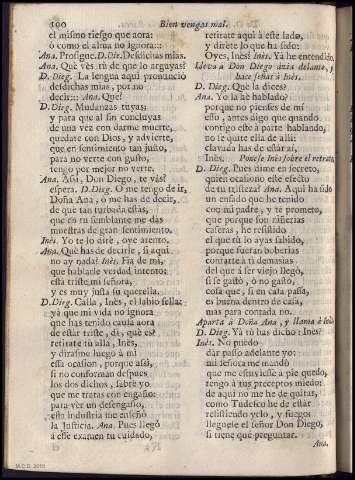 190
Bien vengas mal.
el mismo riesgo que aora:
ò como el alma no ignora:::
Ana. Prosigue. D. Die. Desdichas mias.
Ana. Què ves, tù de que lo arguyas?
D. Dieg. La lengua aqui pronunciò
desdichas mias, por no
decir::: Ana. Què?
D. Dieg. Mudanzas tuyas;
y para que al fin concluyas
de una vez con darme muerte,
quedate con Dios, y advierte,
que en sentimiento tan justo,
para no verte con gusto,
tengo por mejor no verte.
Ana. Assi, Don Diego, te vàs?
espera. D. Dieg. O me tengo de ir,
Doña Ana, ò me has de decir,
de que tan turbada estàs,
que en tu semblante me das
muestras de gran sentimiento.
Inès. Yo te lo dirè, oye atento.
Ana. Què has de decirle, si aqui
no ay nada? Inès. Fia de mi,
que hablarle verdad intento:
està triste mi señora,
y es muy justa su querella.
D. Dieg. Calla, Inès, el labio sella:
yà que mi vida no ignora
que has tenido causa aora
de estàr triste, dì, què es?
retirate tu allà, Inès,
y dirasme luego à mi
essa ocasion, porque assi,
si no conforman despues
los dos dichos, sabrè yo
que me tratas con engaño:
para vèr un desengaño,
esta industria me enseñò
la Justicia. Ana. Pues llegò
à esse examen tu cuidado,
retirate aqui à este lado,
y dirète lo que ha sido:
Oyes, Inès? Inès. Yà he entendido.
Llevase à Don Diego azia delante, y
hace señas à Inès.
D. Dieg. Què la dices?
Ana. Yo la hè hablado?
porque no pienses de mi
esso, antes digo que quando
contigo estè à parte hablando,
no se quite ella de alli:
clavada has de estàr aì,
Inès. Ponese Inès sobre el retrato.
D. Dieg. Pues dime en secreto,
quien ocasionò este efecto
de tu tristeza? Ana. Aqui ha sido
un enfado que he tenido
con mi padre, y te prometo,
que porque son niñerias
caseras, he resistido
el que tù lo ayas sabido,
porque fueran boberias
contarte à ti demasias
del que à ser viejo llegò,
si se gastò, ò no gastò,
cosa que, si en casa passa,
es buena dentro de casa,
mas para contada no.
Aparta à Doña Ana, y llama à Inès.
D. Dieg. Yà tù has dicho: Inès?
Inès. No puedo
dàr passo adelante yo:
mi señora me mandò
que me estuviesse à pie quedo,
tengo à sus preceptos miedo:
de aqui no me he de quitar,
como Tudesco he de estàr
resistiendo yelo, y fuego:
lleguese el señor Don Diego,
si tiene què preguntar.
Ana.
M.C.D. 2010